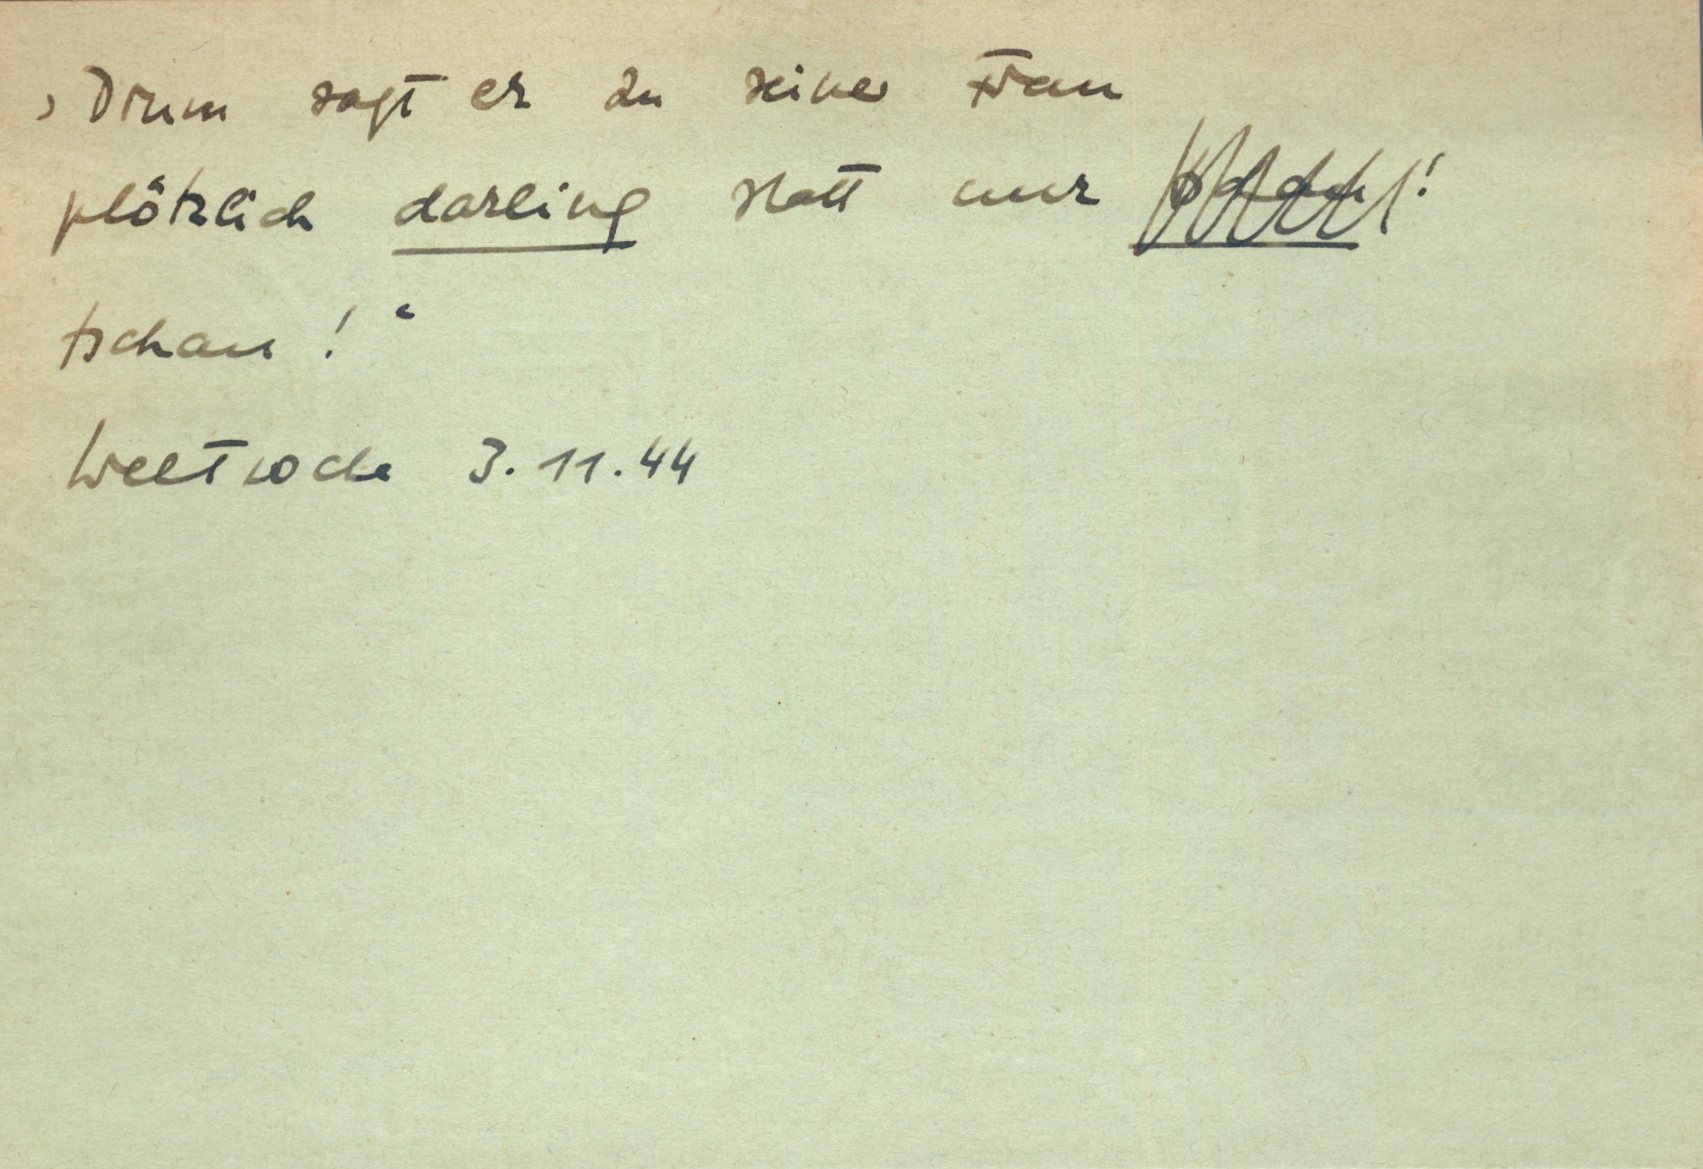 ‚Drum sagt er zu seiner Frau
plötzlich darling statt nur !
tschau!‘
Weltwoche 3.11.44